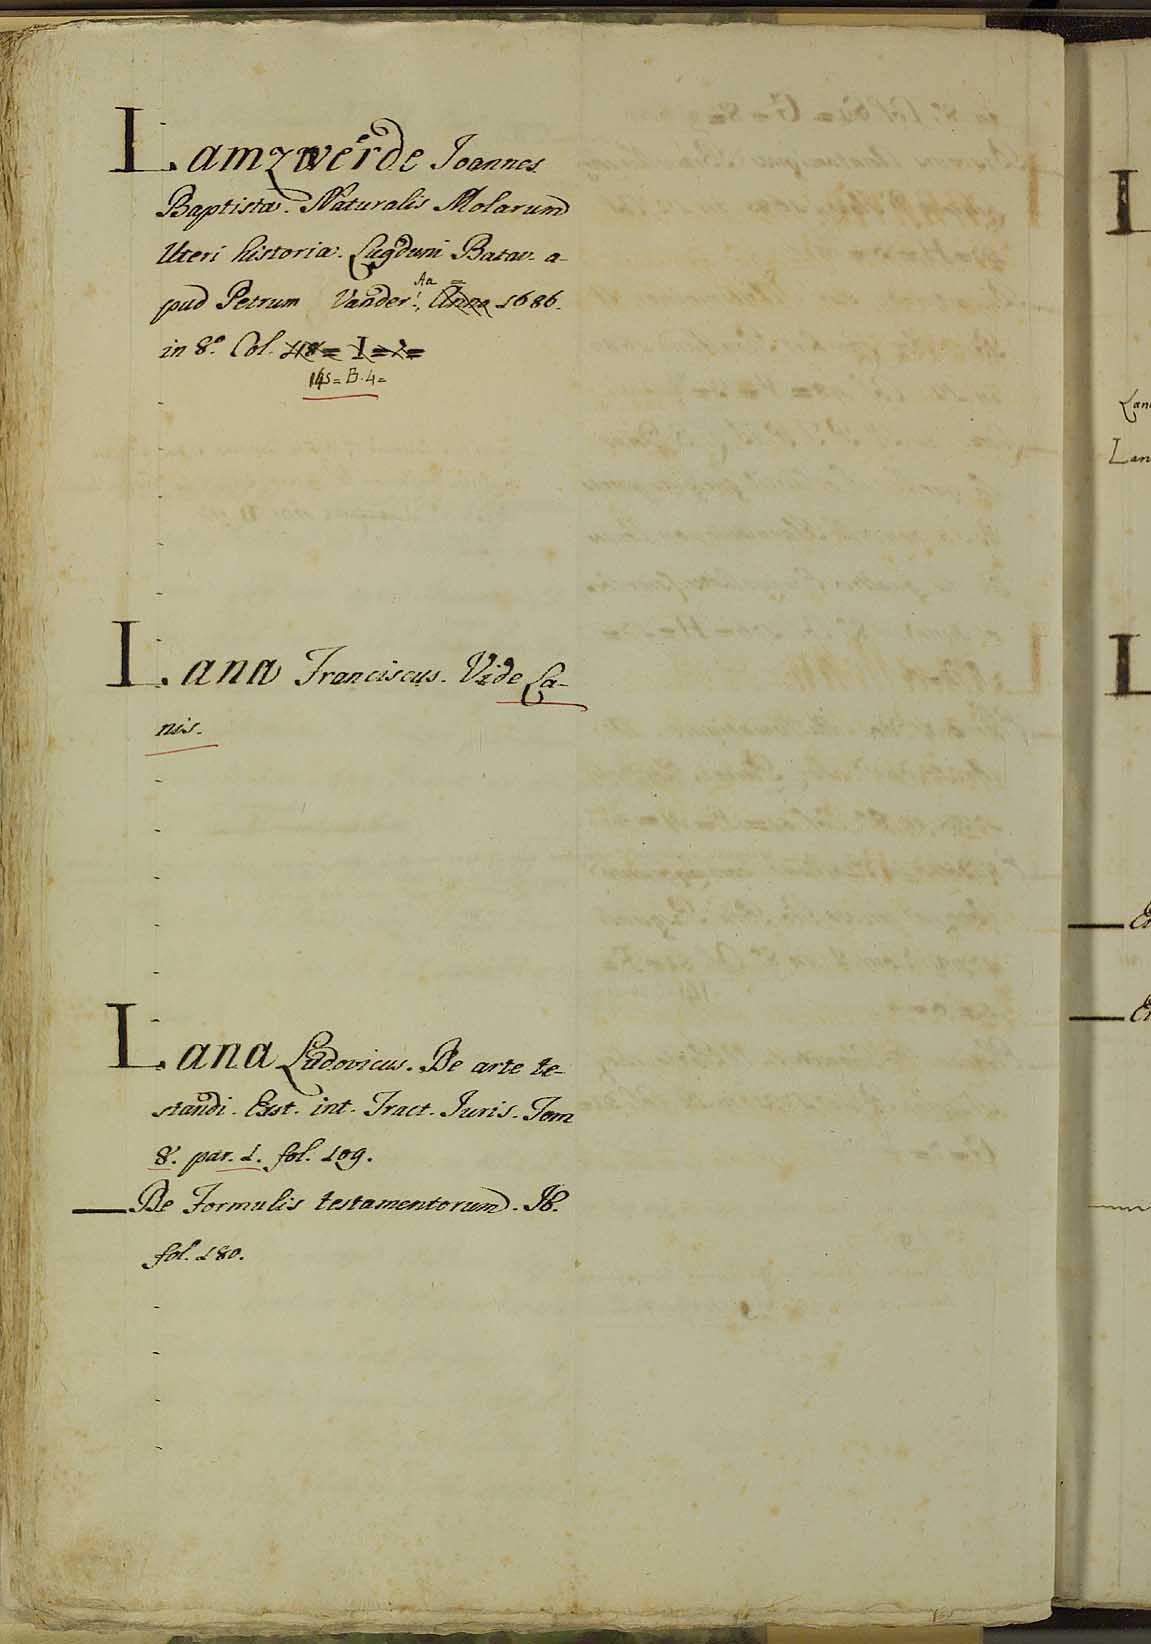 Lamzwerde Joannes
Baptista. Naturalis Molarum
Uteri historia. Lugduni Batav. a-
pud Petrum Vander Aa = Anna 1686.
in 8.° Col. 48 = I = 2 =
145 = B. 4 =
Lana Franciscus. Vide La-
nis.
Lana Ludovicus. De arte te-
standi. Exst. int. Tract. Juris. Tom
8. par. 1. fol. 109.
— De Formulis testamentorum. Ib.
fol. 180.
L
Lan
L